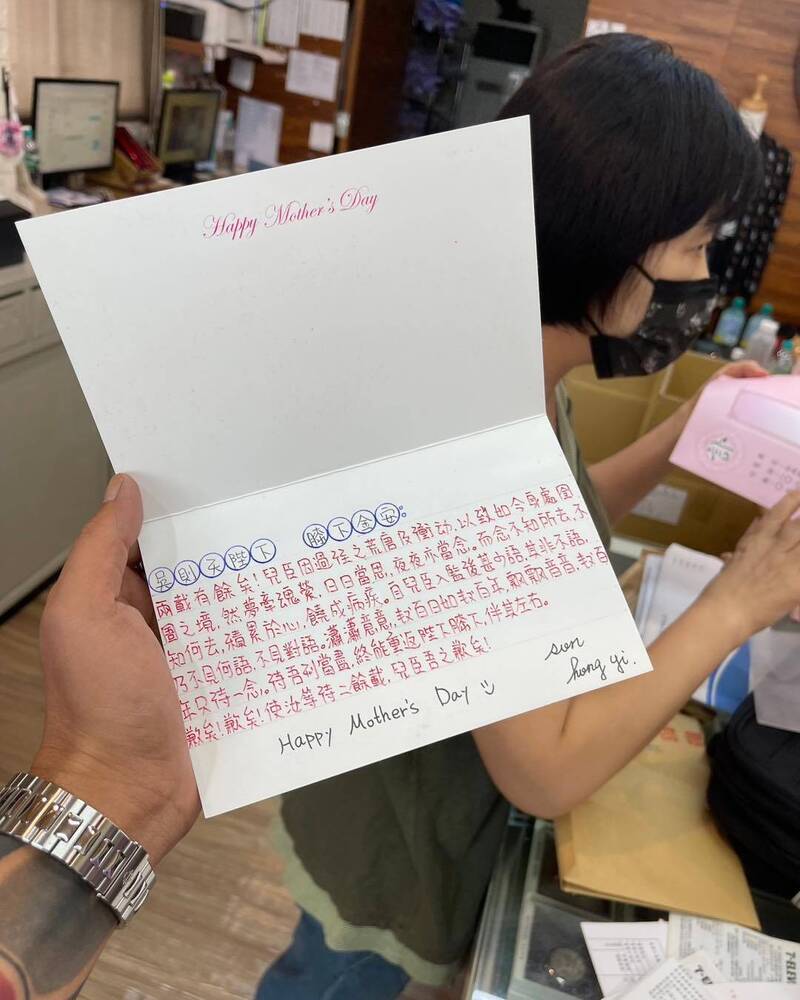 Happy Mother's Day
吳則矢陛下 膝下金安:
兩載有餘矣!兒臣因過往之荒唐及衝动,以致如今身處囹
圄之境,然夢牽魂縈,日日當思,夜夜亦當念。而念不知所去,不
知何去,積累於心,饒成病疾。自兒臣入監後甚少語,甚非不語,
乃不見何語,不見對語。瀟瀟意意,数百日如数百年,飘飘音音,数百
年只待一念。待吾刑當盡,終能重返陛下膝下,伴其左右。
歉矣!歉矣!使汝等待二餘載,兒臣吾之歉矣!
Happy Mother's Day
sun
hong yi.
7-ELEV